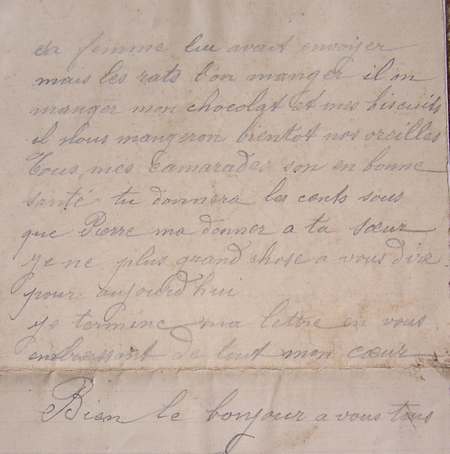 sa femme lui avait envoyer
mais les rats l'on manger il on
manger mon chocolat et mes biscuits
il nous mangeron bientot nos oreilles
Tous mes Camarades son en bonne
santé tu donnera les cents sous
que Pierre ma donner a ta sœur
je ne plus grand chose a vous dire
pour aujourd'hui
je termine ma lettre en vous
embrassant de tout mon cœur
Bien le bonjour a vous tous